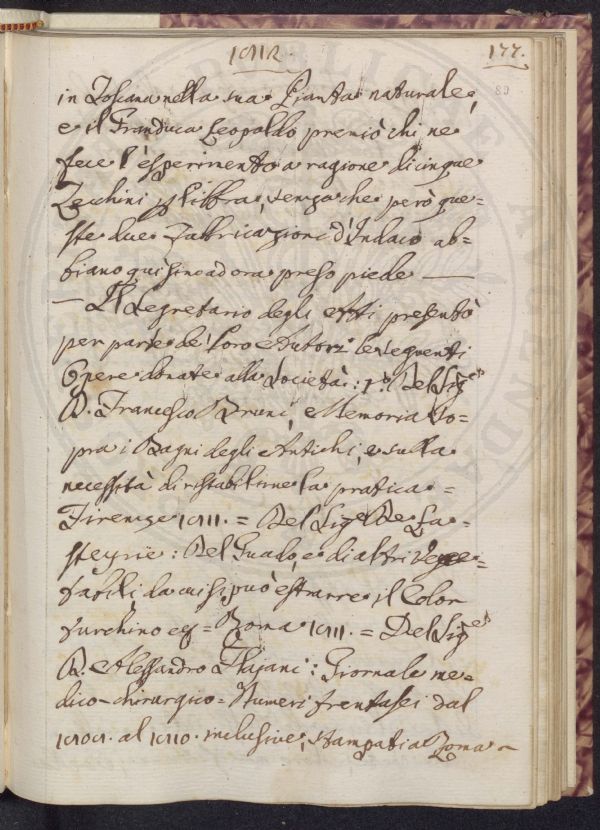 1812. 177.
89
in Toscana nella sua Pianta naturale;
e il Granduca Leopoldo premiò chi ne
fece l'esperimento a ragione di cinque
Zecchini p libbra, senza che però que=
ste due Fabbricazioni d'Indaco ab=
biano quì sino ad ora preso piede —
— Il Segretario degli Atti presentò
per parte de' loro Autori le seguenti
Opere donate alla Società: 1.° Del Sig.r
D. Francesco Bruni, Memoria so=
pra i Bagni degli Antichi, e sulla
necessità di ristabilirne la pratica =
Firenze 1811. = Del Sig.r De La=
steyrie: Del Guado, e di altri vege=
tabili da cui si può estrarre il Color
turchino eg = Roma 1811. = Del Sig.r
D. Alessandro Flajani: Giornale me=
dico-chirurgico = Numeri trentasei dal
1808. al 1810. inclusive, stampati a Roma ~